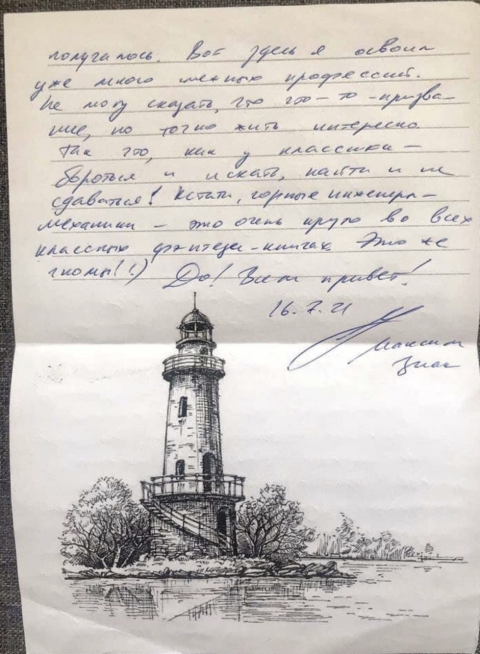 получалось. Вот здесь я освоил
уже много нежных профессий.
Не могу сказать, что что-то - призва-
ние, но точно жить интересно.
Так что, как у классики -
бороться и искать, найти и не
сдаваться! Кстати, горные инженеры-
механики - это очень круто во всех
классных фэнтези-книгах. Это же
гномы! :) Да! Вам привет!
16.7.21
Максим